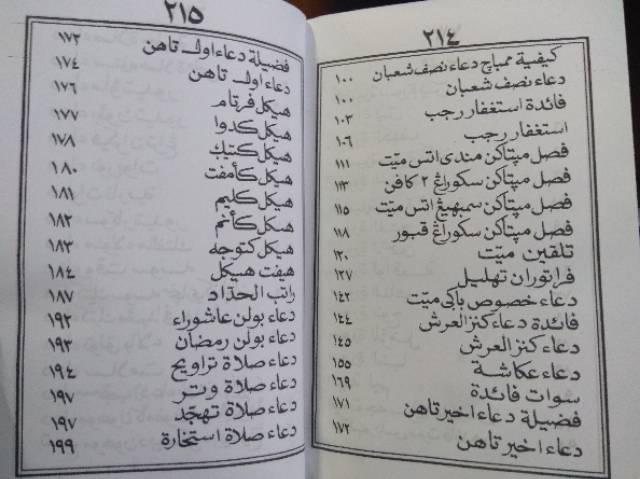 ٢١٤
كيفية ممباچ دعاء نصف شعبان ١٠٠
دعاء نصف شعبان ١٠٠
فائدة استغفار رجب ١٠٣
استغفار رجب ١٠٦
فصل ميتاكن مندي اتس ميّت ١١١
فصل ميتاكن سكوراڠ ٢ كافن ١١٣
فصل ميتاكن سمبهيڠ اتس ميّت ١١٥
فصل ميتاكن سكوراڠ قبور ١١٨
تلقين ميّت ١٢٠
فراتوران تهليل ١٢٧
دعاء خصوص باكي ميّت ١٤٢
فائدة دعاء كنز العرش ١٤٤
دعاء كنز العرش ١٤٥
دعاء عكاشة ١٥٥
سوات فائدة ١٦٩
فضيلة دعاء اخير تاهن ١٧١
دعاء اخير تاهن ١٧٢
٢١٥
فضيلة دعاء اول تاهن ١٧٢
دعاء اول تاهن ١٧٤
هيكل فرتام ١٧٦
هيكل كدوا ١٧٧
هيكل كتيك ١٧٨
هيكل كأمفت ١٨٠
هيكل كليم ١٨١
هيكل كأنم ١٨٢
هيكل كتوجه ١٨٣
هيفت هيكل ١٨٤
راتب الحدّاد ١٨٧
دعاء بولن عاشوراء ١٩٢
دعاء بولن رمضان ١٩٣
دعاء صلاة تراويح ١٩٤
دعاء صلاة وتر ١٩٧
دعاء صلاة تهجّد ١٩٧
دعاء صلاة استخارة ١٩٩